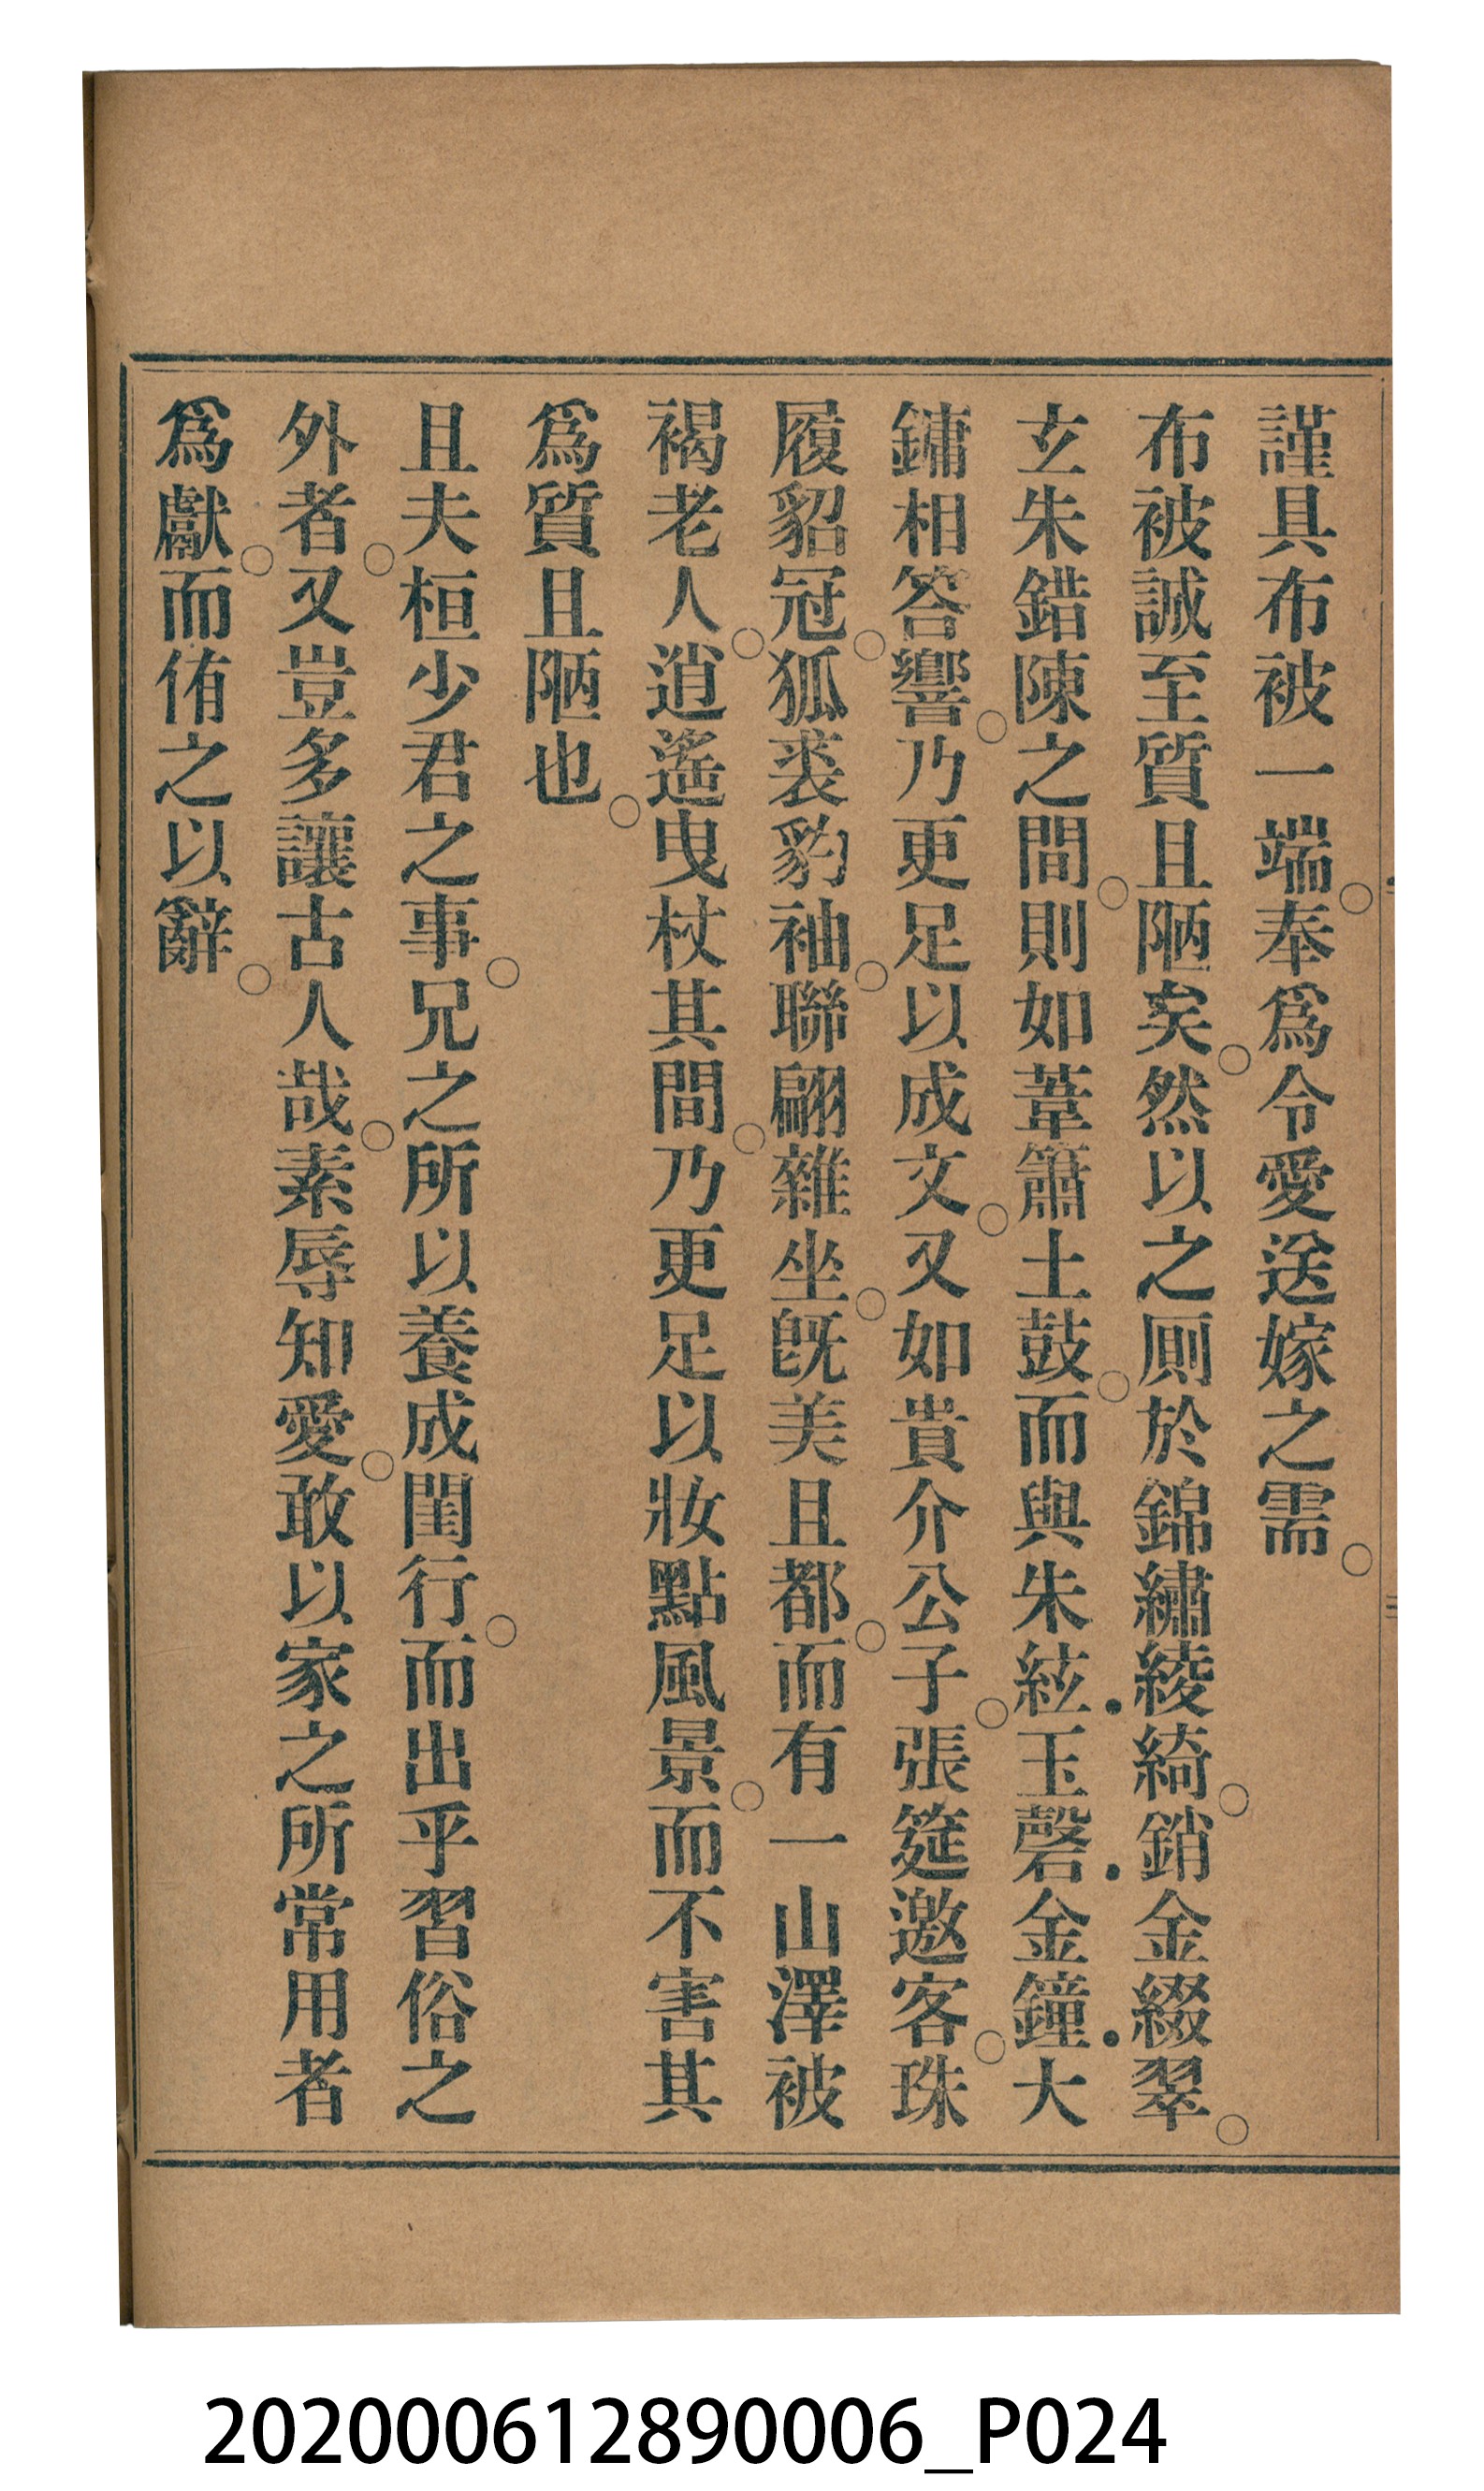 謹具布被一端。奉爲令愛送嫁之需。
布被誠至質且陋矣。然以之厠於錦繡綾綺。銷金綴翠。
玄朱錯陳之間。則如葦籥土鼓。而與朱絃.玉磬.金鐘.大
鏞相答響。乃更足以成文。又如貴介公子。張筵邀客。珠
履貂冠。狐裘豹袖。聯翩雜坐。旣美且都。而有一山澤被
褐老人。逍遙曳杖其間。乃更足以妝點風景。而不害其
爲質且陋也。
且夫桓少君之事。兄之所以養成閨行。而出乎習俗之
外者。又豈多讓古人哉。素辱知愛。敢以家之所常用者
爲獻。而侑之以辭。
202000612890006_P024